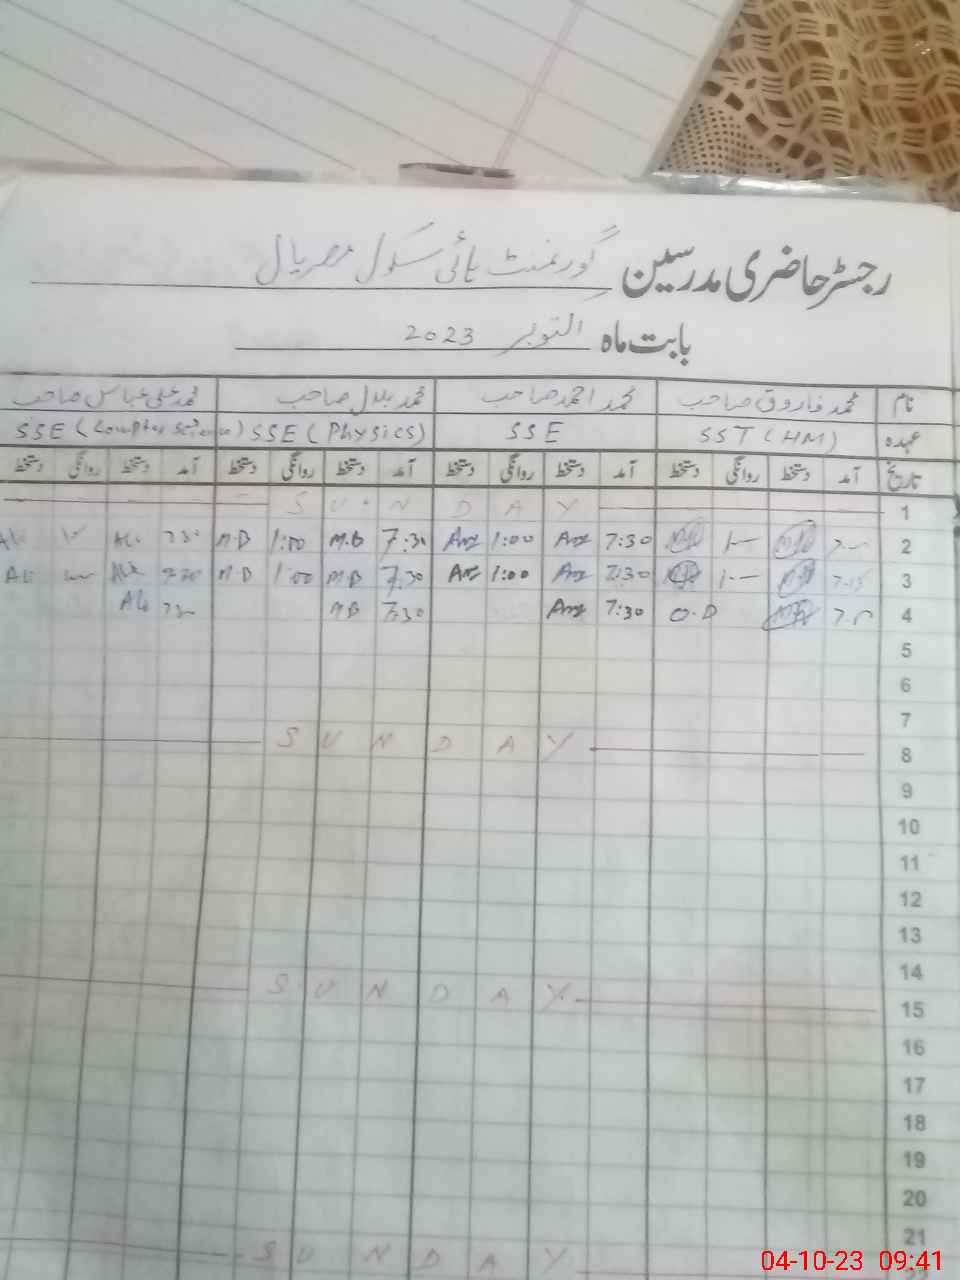 رجسٹر حاضری مدرسین گورنمنٹ ہائی سکول مصریال
بابت ماہ اکتوبر 2023
نام محمد فاروق صاحب محمد احمد صاحب محمد بلال صاحب محمد علی عباس صاحب
عہدہ SST (HM) SSE SSE (Physics) SSE (Computer Science)
تاریخ آمد دستخط روانگی دستخط آمد دستخط روانگی دستخط آمد دستخط روانگی دستخط آمد دستخط روانگی دستخط
1 SUNDAY
2 7:30 1:00 7:30 M.B 1:00 M.B 730
3 7:15 7:30 1:00 7:30 M.B 1:00 M.B
4 O.D 7:30 7:30 M.B
5
6
7
8 SUNDAY
9
10
11
12
13
14
15 SUNDAY
16
17
18
19
20
21
SUNDAY
04-10-23 09:41